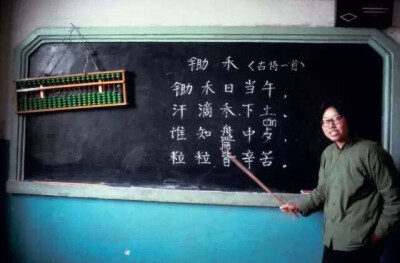 锄禾〈古诗一首〉
锄禾日当午，
汗滴禾下土。
谁知盘中歺，
粒粒皆辛苦。